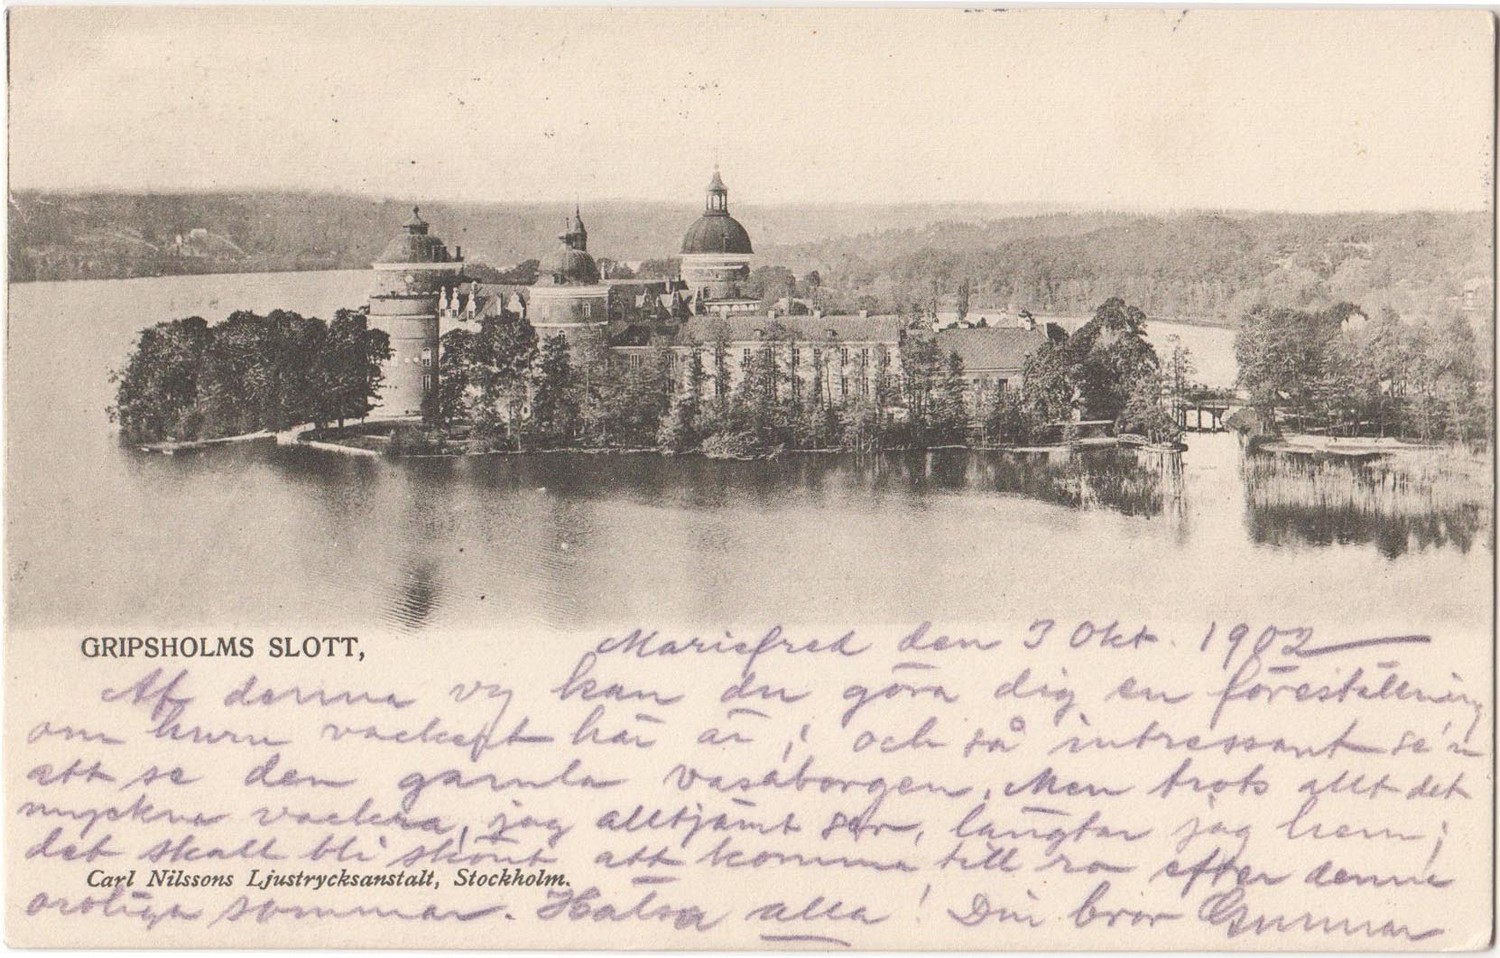 GRIPSHOLMS SLOTT,
Mariefred den 3 Okt. 1902
Af denna vy kan du göra dig en föreställning
om huru vackert här är; och så intressant se'n
att se den gamla vasaborgen. Men trots allt det
myckna vackra, jag alltjämt ser, längtar jag hem;
det skall bli skönt att komma till ro efter denna
Carl Nilssons Ljustrycksanstalt, Stockholm.
oroliga sommar. Hälsa alla! Din bror Gunnar